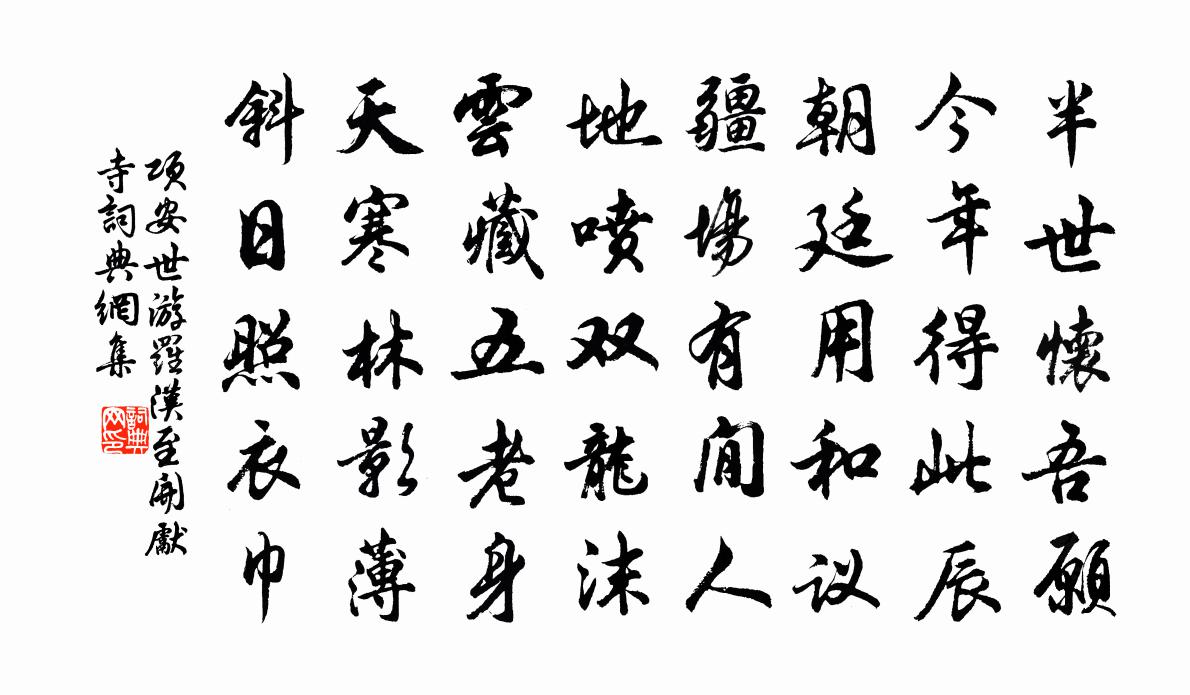 半世懷吾願
今年得此辰
朝廷用和议
疆場有閒人
地喷双龍沫
雲藏五老身
天寒林影薄
斜日照衣巾
項安世游羅漢至開獻
寺詞典網集
詞典网印